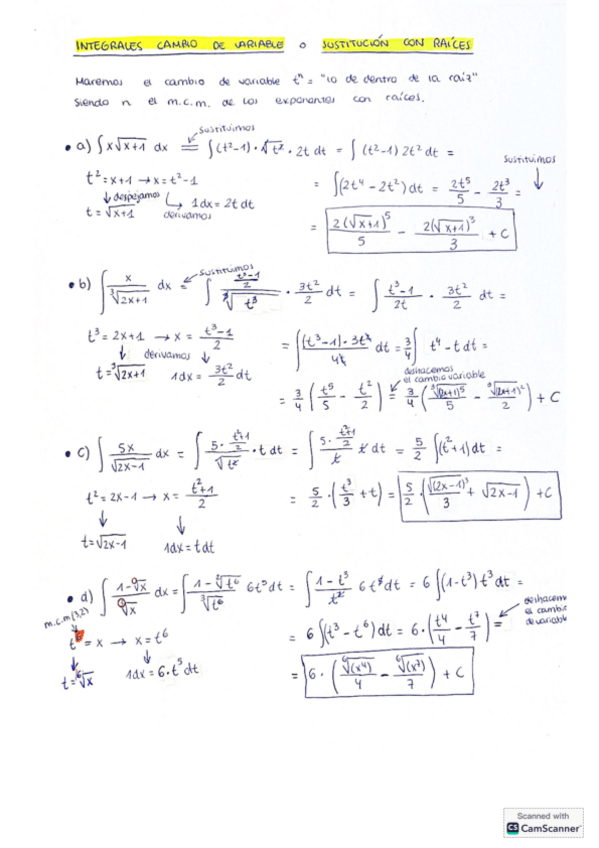 INTEGRALES CAMBIO DE VARIABLE o SUSTITUCIÓN CON RAÍCES
Haremos el cambio de variable tⁿ = "lo de dentro de la raíz"
siendo n el m.c.m. de los exponentes con raíces.
sustituimos
• a) ∫ x√(x+1) dx = ∫ (t²-1) · √t² · 2t dt = ∫ (t²-1) 2t² dt =
t² = x+1 → x = t²-1
despejamos
t = √(x+1)
1dx = 2t dt
derivamos
= ∫(2t⁴ - 2t²) dt = 2t⁵/5 - 2t³/3 =
sustituimos
= 2(√x+1)⁵/5 - 2(√x+1)³/3 + C
• b) ∫ x/∛(2x+1) dx = ∫ ((t³-1)/2)/∛t³ · 3t²/2 dt = ∫ (t³-1)/2t · 3t²/2 dt =
sustituimos
t³ = 2x+1 → x = (t³-1)/2
derivamos
t = ∛(2x+1)
1dx = 3t²/2 dt
= ∫ ((t³-1)·3t²)/4t dt = 3/4 ∫ t⁴ - t dt =
deshacemos
el cambio variable
= 3/4 (t⁵/5 - t²/2) = 3/4 (∛(2x+1)⁵/5 - ∛(2x+1)²/2) + C
• c) ∫ 5x/√(2x-1) dx = ∫ (5·(t²+1)/2)/√t² · t dt = ∫ (5·(t²+1)/2)/t t dt = 5/2 ∫(t²+1) dt =
t² = 2x-1 → x = (t²+1)/2
t = √(2x-1)
1dx = t dt
= 5/2 · (t³/3 + t) = 5/2 · (√(2x-1)³/3 + √(2x-1)) + C
• d) ∫ (1-√x)/∛x dx = ∫ (1-√t⁶)/∛t⁶ 6t⁵ dt = ∫ (1-t³)/t² 6t⁵ dt = 6 ∫(1-t³) t³ dt =
m.c.m (3,2)
t⁶ = x → x = t⁶
t = ⁶√x
1dx = 6·t⁵ dt
= 6 ∫(t³ - t⁶) dt = 6·(t⁴/4 - t⁷/7) =
el cambio
de variable
= 6 · (⁶√(x⁴)/4 - ⁶√(x⁷)/7) + C
Scanned with
CS CamScanner